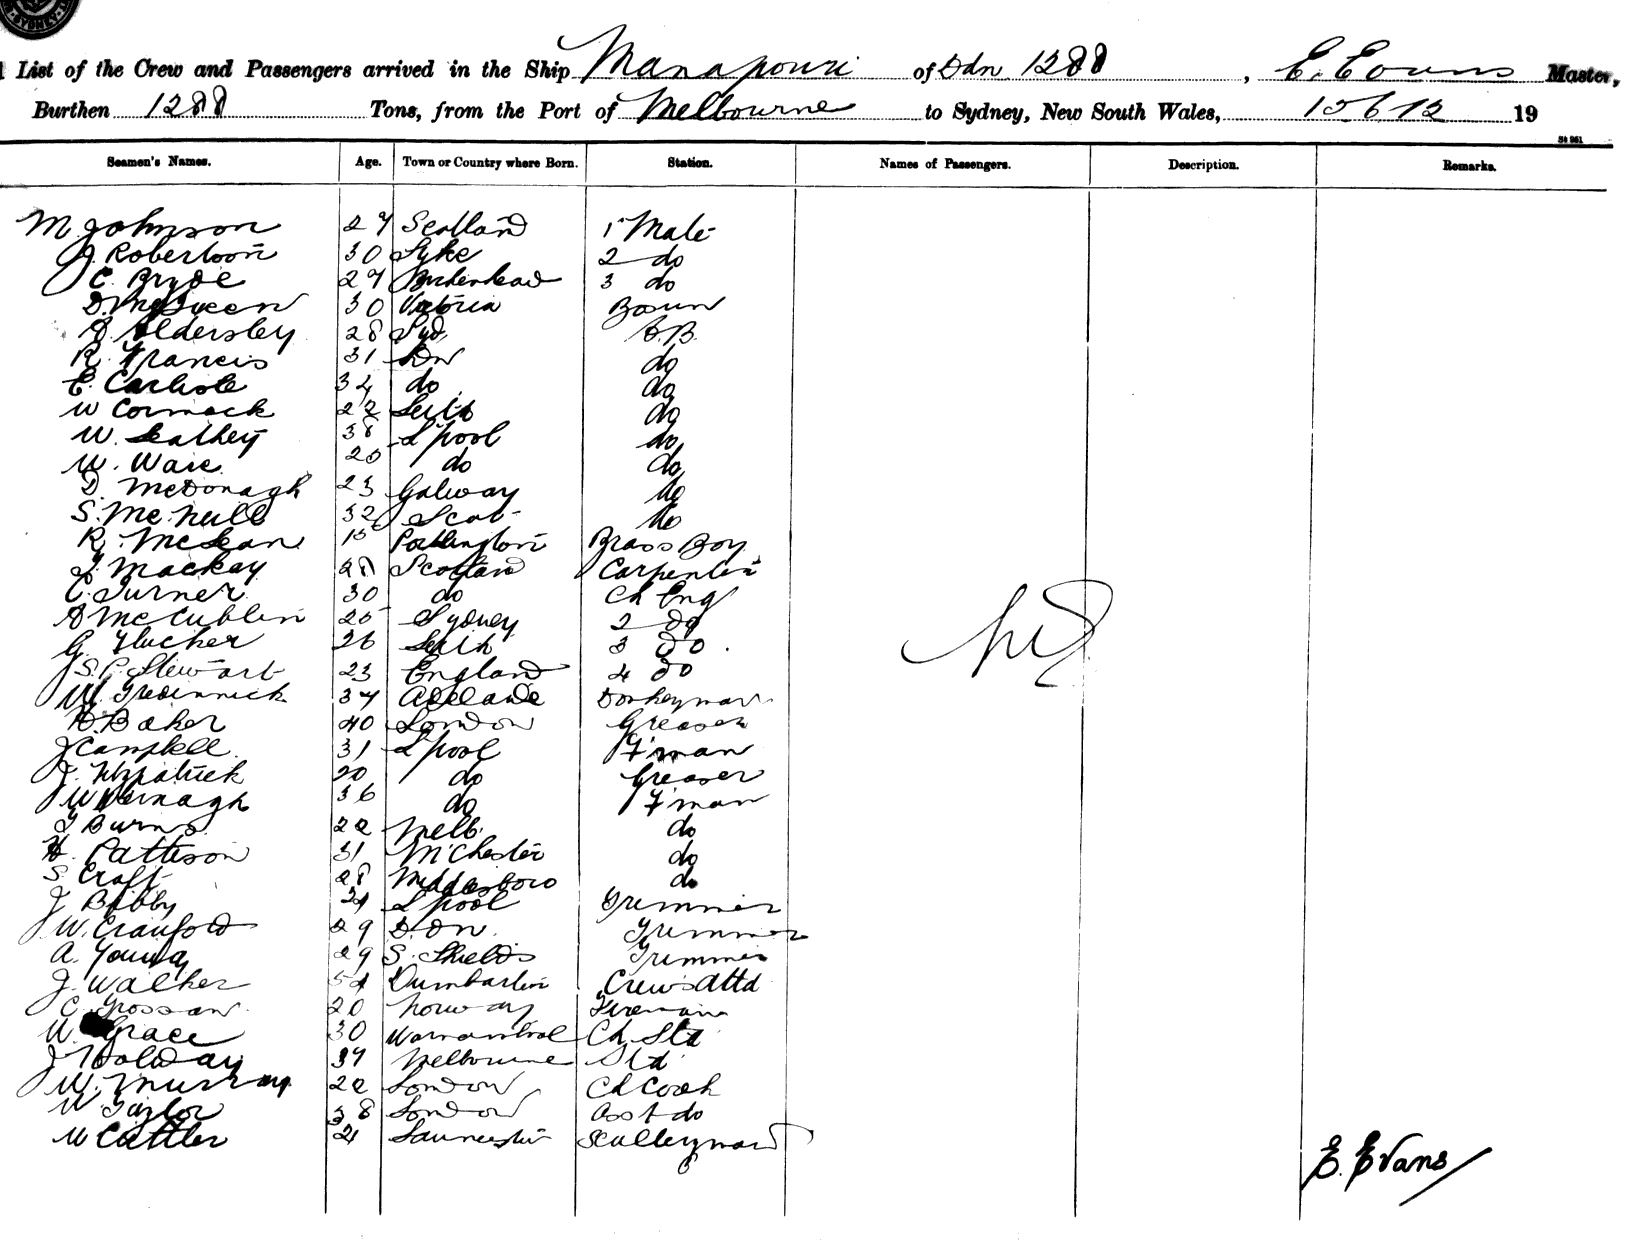 SYDNEY
List of the Crew and Passengers arrived in the Ship Manapouri of Ddn 1288, E. Evans Master,
Burthen 1288 Tons, from the Port of Melbourne to Sydney, New South Wales, 15 6 12 19
St 961
Seamen's Names. Age. Town or Country where Born. Station. Names of Passengers. Description. Remarks.
M Johnson 27 Scotland 1 Mate
J. Robertson 30 Syke 2 do
C. Bryde 27 Birkenhead 3 do
D. McQueen 30 Victoria Bosun
Aldersley 28 Syd A.B.
R. Francis 31 Ldn do
E. Carlisle 34 do do
W Cormack 22 Leith do
W. Leathey 38 L'pool do
W. Ware 20 do do
D. McDonagh 23 Galway do
S. McNull 32 Scot do
R. McLean 15 Brass Boy
Mackay 28 Scotland Carpenter
C. Turner 30 do Ch Eng
McCubbin 25 Sydney 2 do
G. Flucker 26 Leith 3 do
J.S.P. Stewart 23 England 4 do
W. Tredinnick 37 Adelaide Donkeyman
Baker 40 London Greaser
J Campbell 31 L'pool F'man
J. Fitzpatrick 20 do Greaser
J W 36 do F'man
T Burns 22 Melb. do
H. Pattison 31 M'Chester do
S. Croft 28 Middlesboro do
J Bibby 21 L'pool Trimmer
J W. Cranford 29 Trimmer
A. Young 29 S. Shields Trimmer
J. Walker 54 Dumbarton Crews Attd
C. Grossan 20 Norway Fireman
W. Grace 30 Warrambool Ch. Std
J Holway 37 Melbourne Std
J W. Murray 22 London Ch Cook
W Taylor 38 London Asst do
W Cattler 21 Launceston Sculleyman
E. Evans